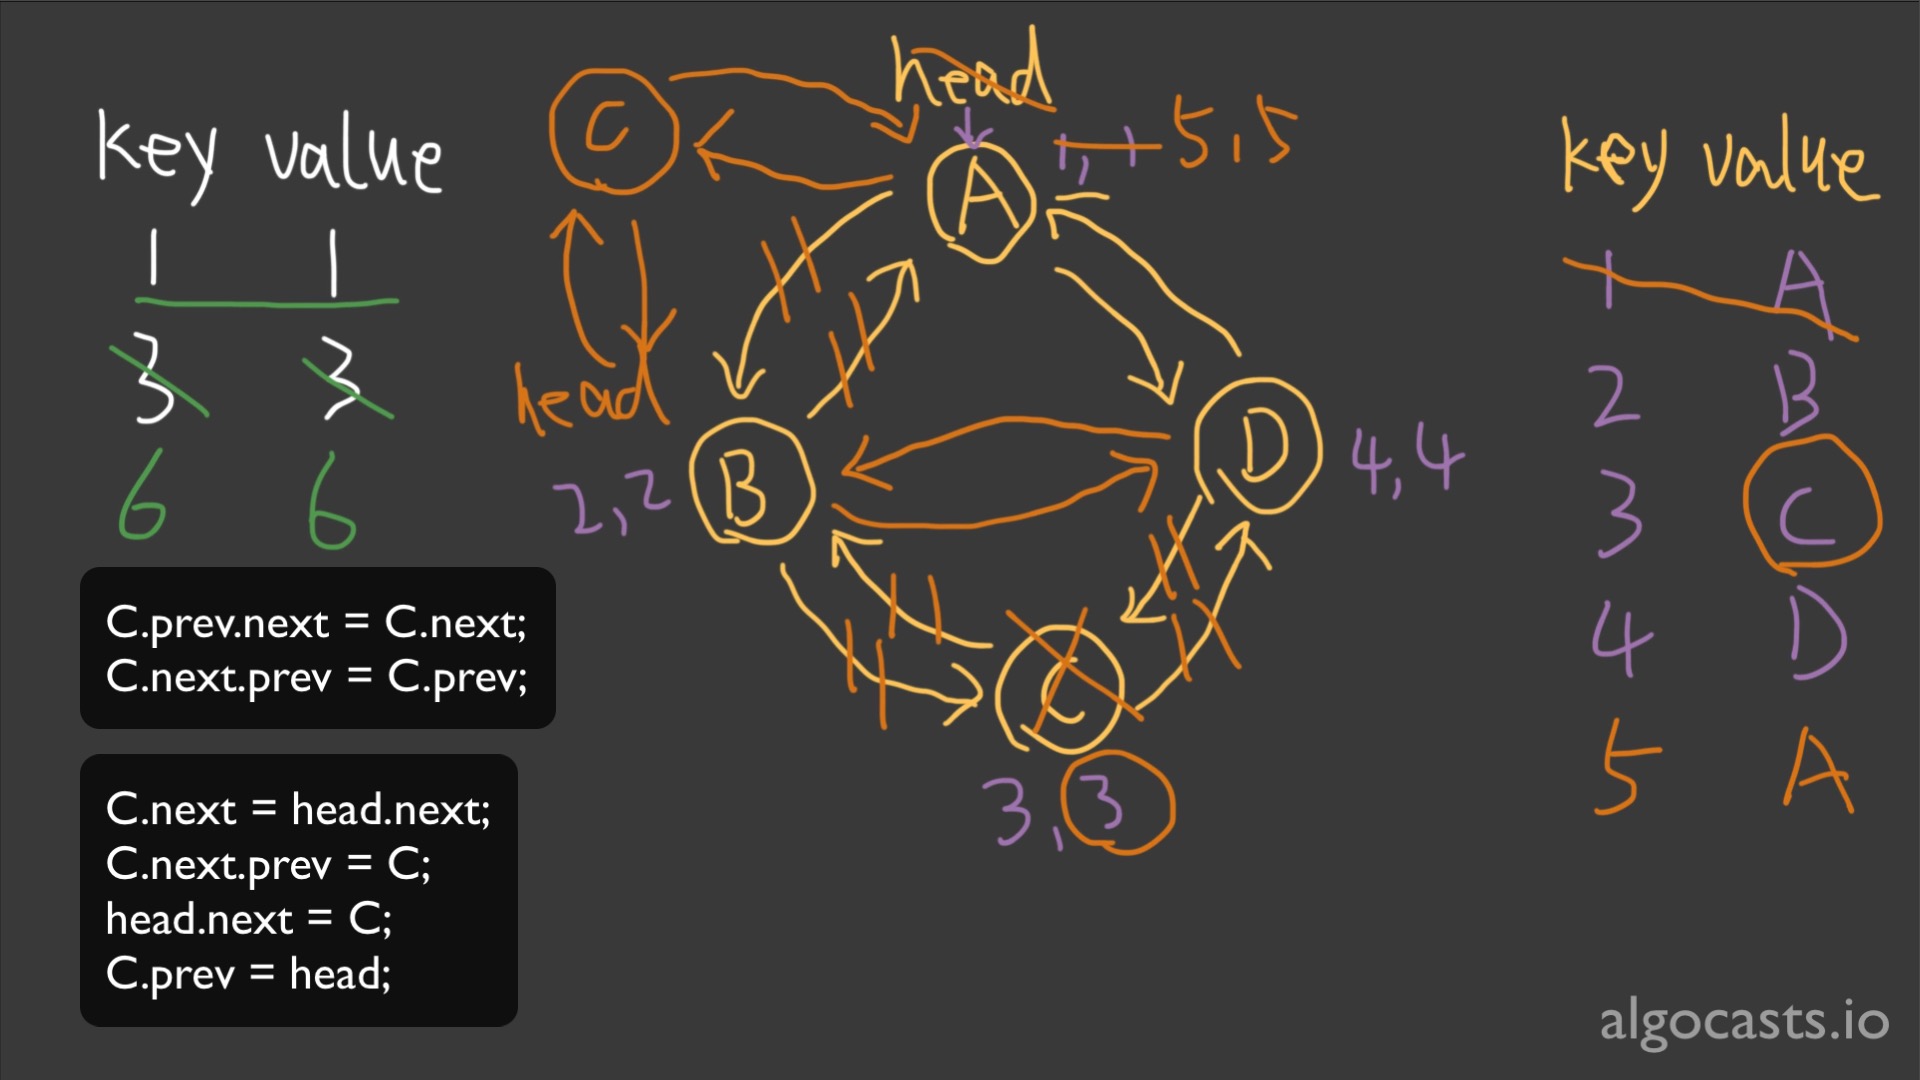 key value
1 1
3 3
6 6
C.prev.next = C.next;
C.next.prev = C.prev;
C.next = head.next;
C.next.prev = C;
head.next = C;
C.prev = head;
head
C
A
1, 1
5,5
head
B
2,2
D
4,4
C
3,3
key value
1 A
2 B
3 C
4 D
5 A
algocasts.io